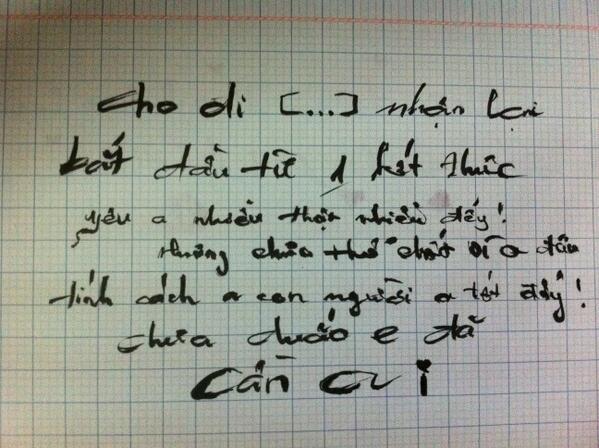 cho đi [...] nhận lại
bắt đầu từ 1 kết thúc
yêu a nhiều thật nhiều đấy!
nhưng chưa thể chết vì a đâu
tính cách a con người a tốt đấy!
chưa chắc e đã
cần a i